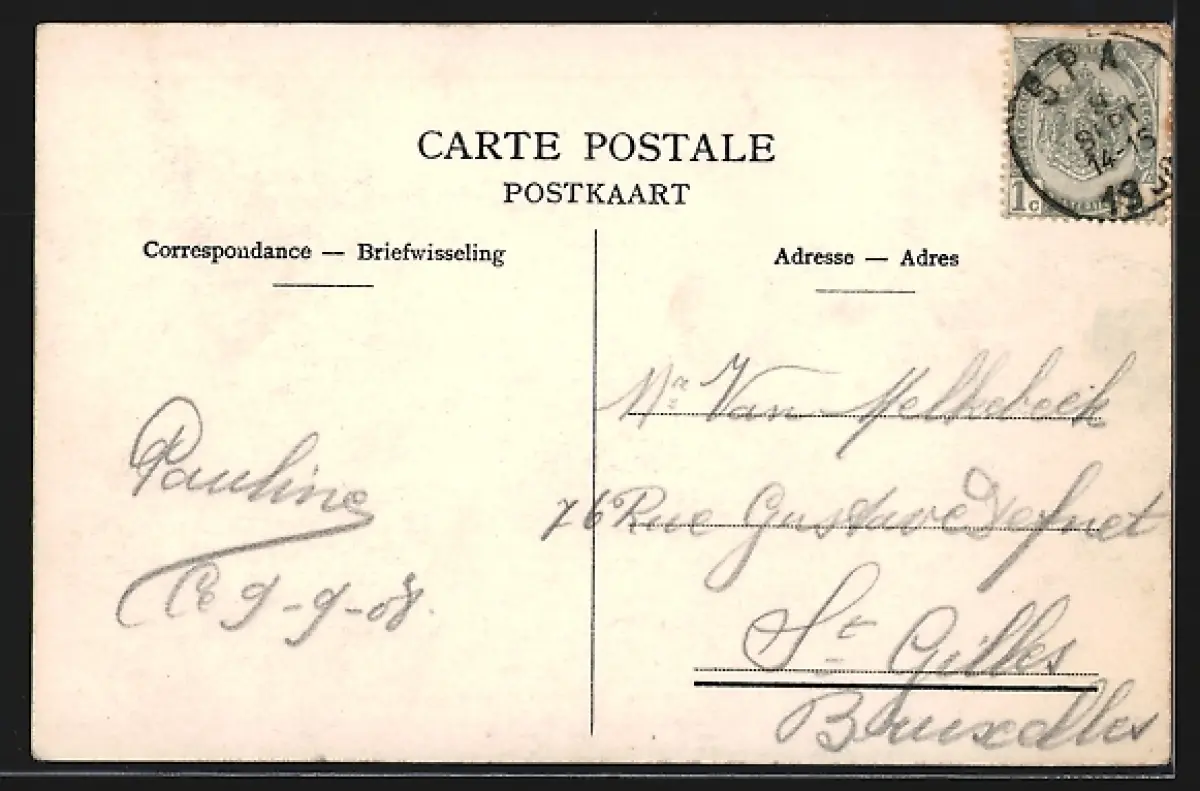 CARTE POSTALE
POSTKAART
Correspondance — Briefwisseling
Adresse — Adres
SPA
SEPT
14-15
19
1c
Pauline
Le 9-9-08.
Mr Van Melkebeek
76 Rue Gustave Defnet
St Gilles
Bruxelles